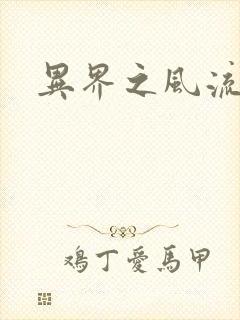 異界之風流
鴻丁愛馬甲